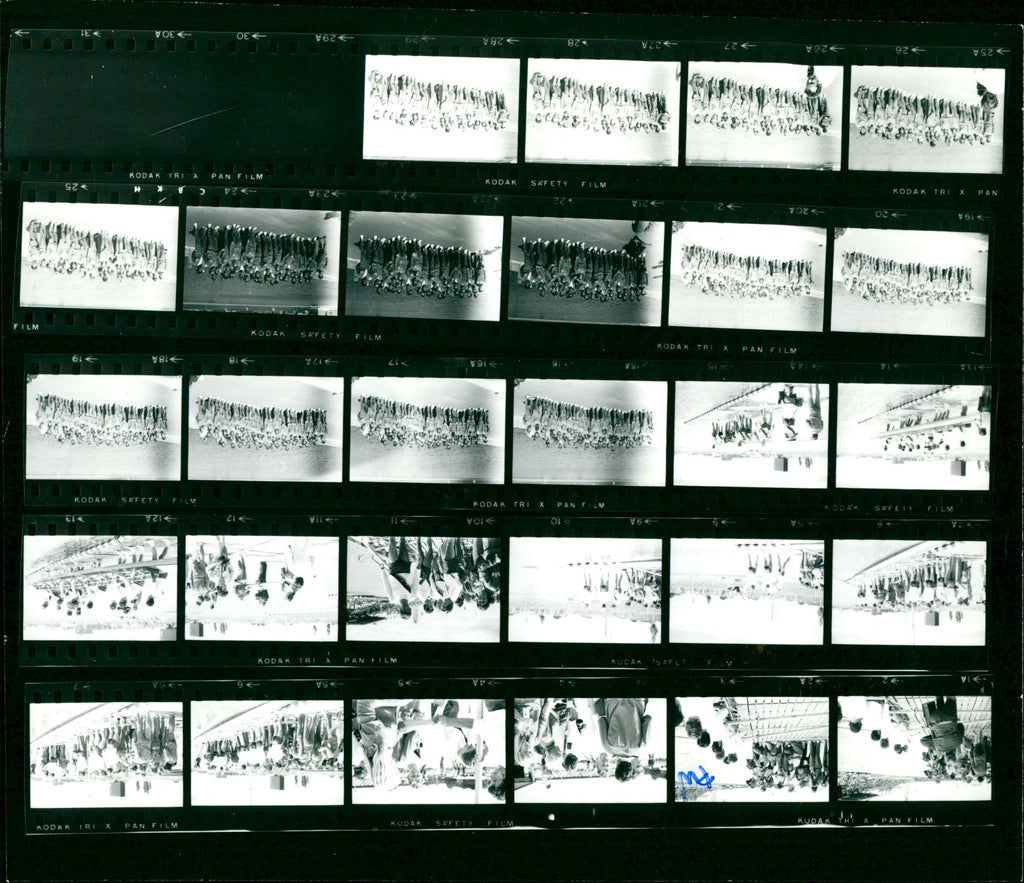 31 30A 30 29A 29 28A 28 27A 27 26A 26 25A
KODAK TRI X PAN FILM KODAK SAFETY FILM KODAK TRI X PAN
25 24 23A 23 22 21A 21 20A 20 19A
FILM KODAK SAFETY FILM KODAK TRI X PAN FILM
19 18A 18 17A 17 16A 16 15A 15 14 13A
KODAK SAFETY FILM KODAK TRI X PAN FILM KODAK SAFETY FILM
13 12A 12 11A 11 10A 10 9A 9 8 7A
KODAK TRI X PAN FILM KODAK SAFETY FILM
7 6A 6 5A 5 4A 3 2A 2 1A
KODAK TRI X PAN FILM KODAK SAFETY FILM KODAK TRI X PAN FILM